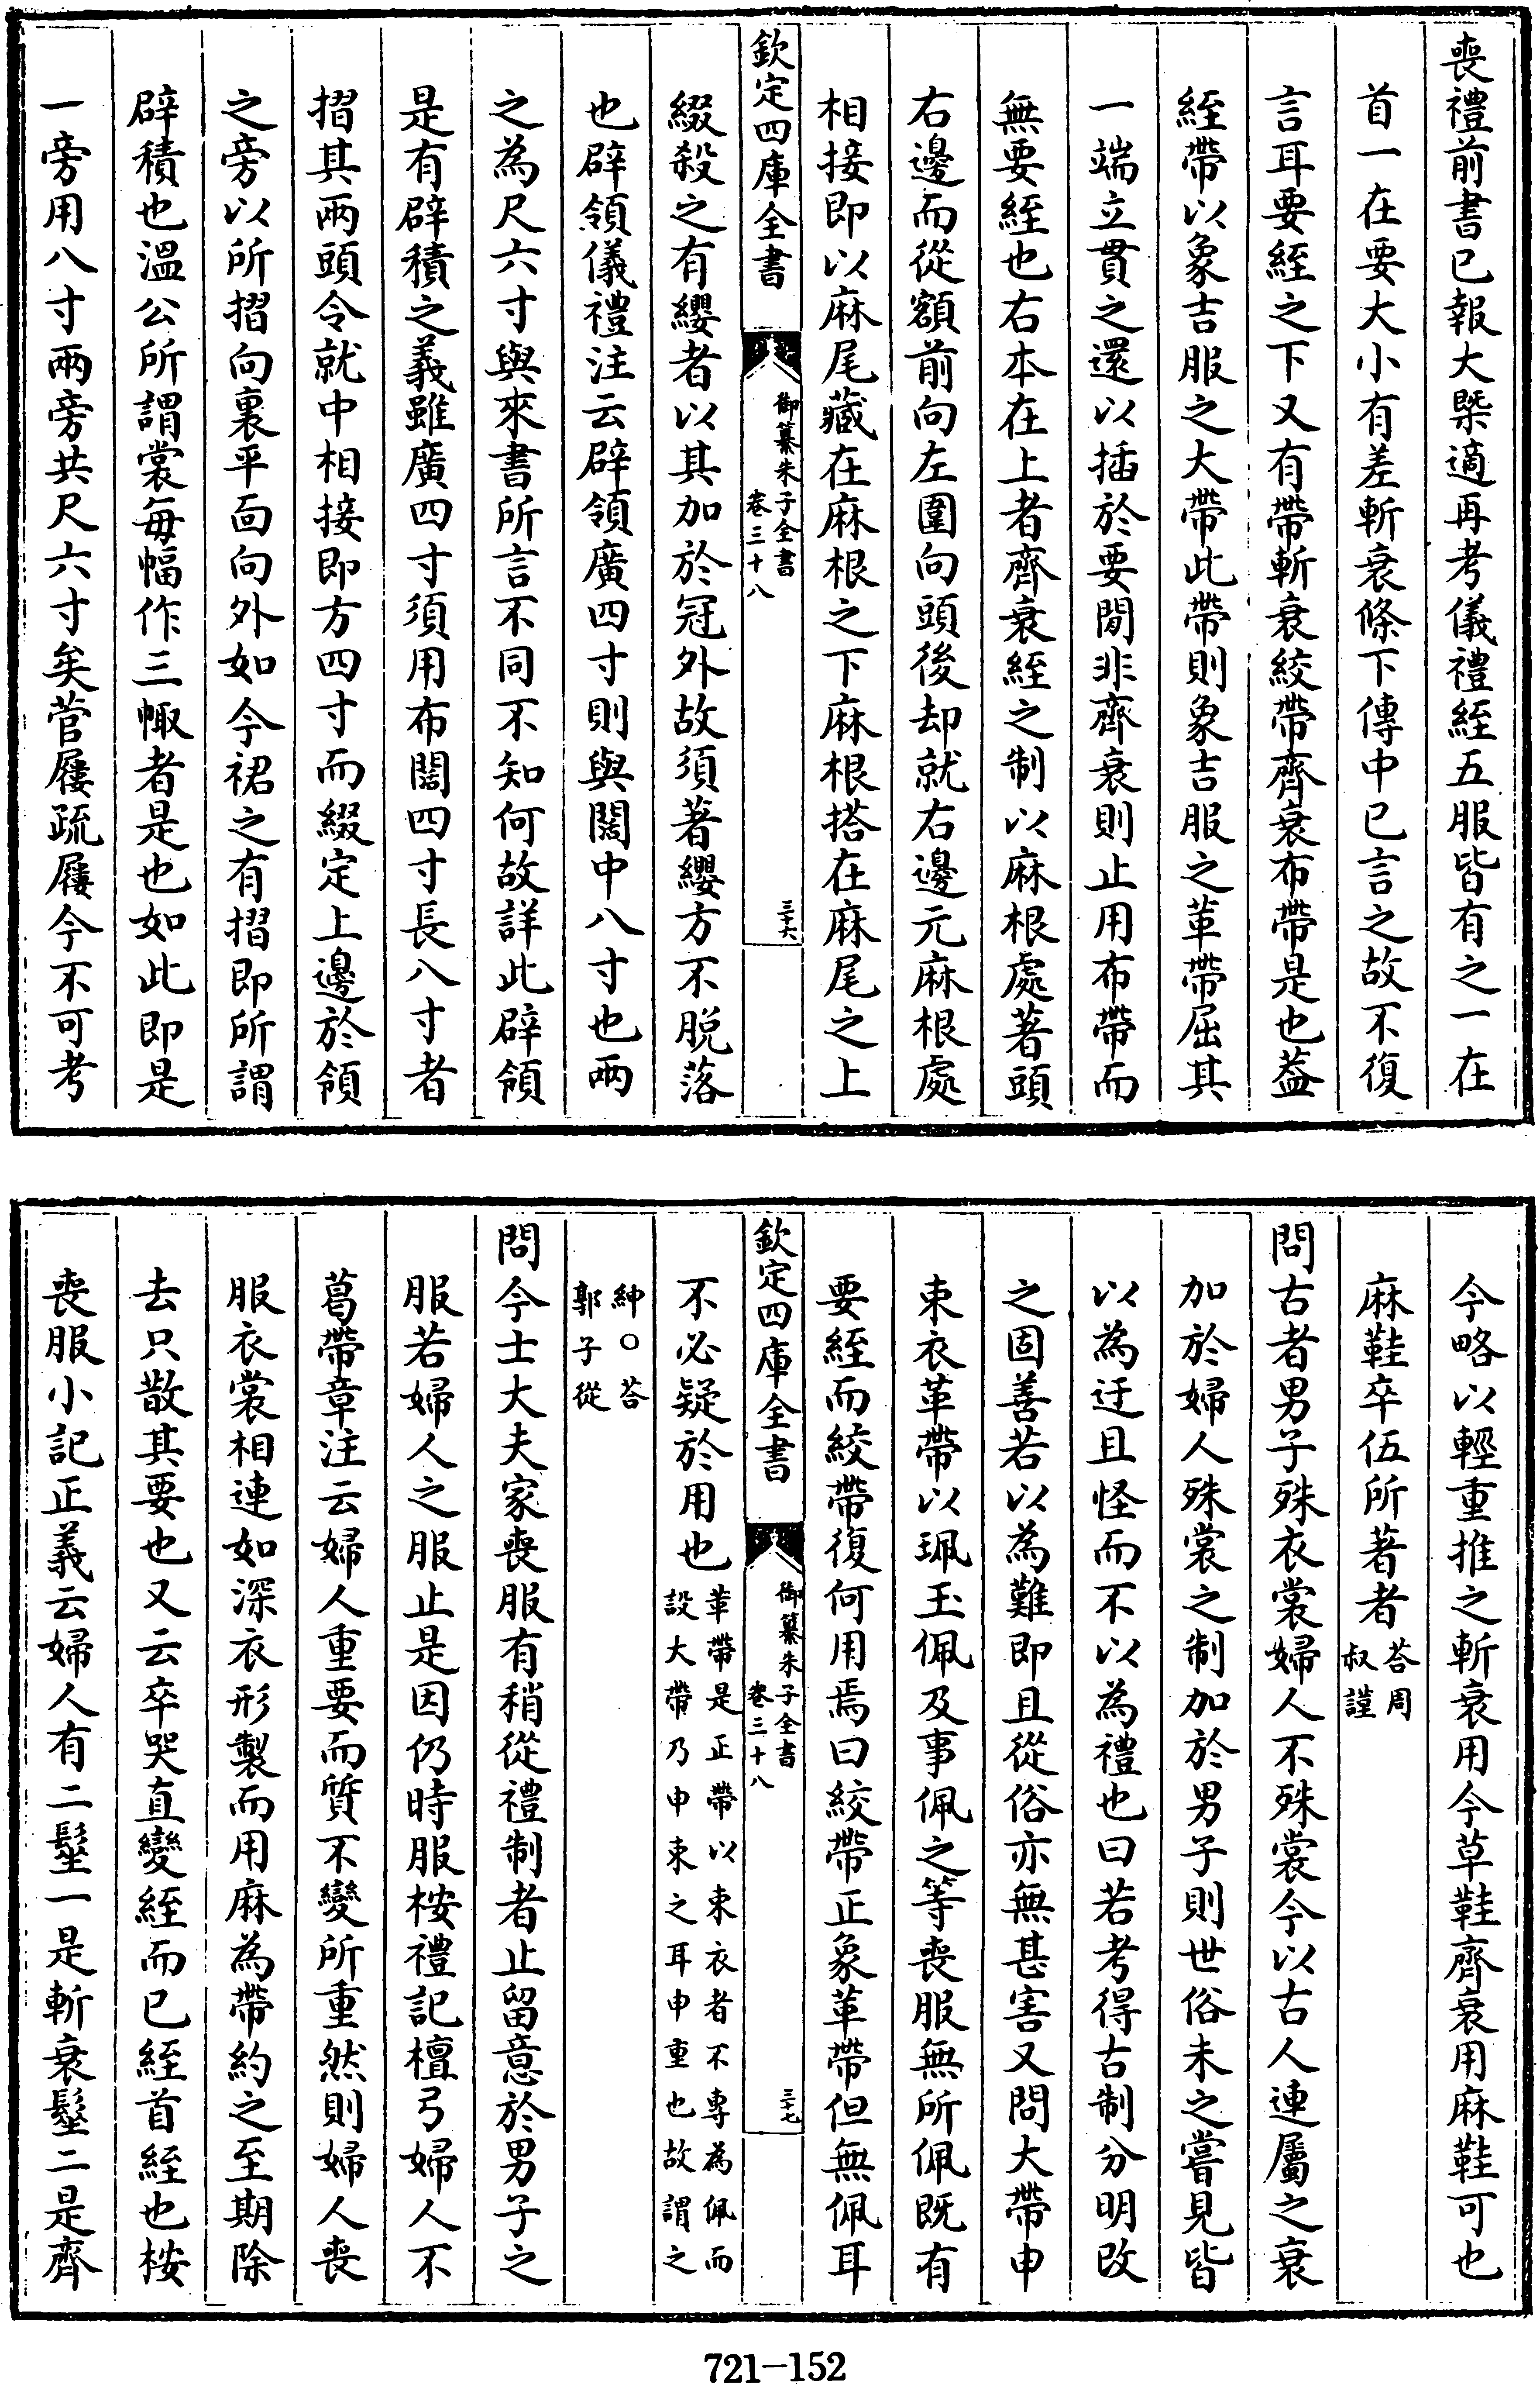 喪禮前書已報大槩適再考儀禮絰五服皆有之一在
首一在要大小有差斬衰條下傳中已言之故不復
言耳要絰之下又有帶斬衰絞帶齊衰布帶是也葢
絰帶以象吉服之大帶此帶則象吉服之革帶屈其
一端立貫之還以插於要閒非齊衰則止用布帶而
無要絰也右本在上者齊衰絰之制以麻根處著頭
右邊而從額前向左圍向頭後却就右邊元麻根處
相接即以麻尾藏在麻根之下麻根搭在麻尾之上
欽定四庫全書
御纂朱子全書
卷三十八
三十六
綴殺之有纓者以其加於冠外故須著纓方不脱落
也辟領儀禮注云辟領廣四寸則與闊中八寸也兩
之為尺六寸與來書所言不同不知何故詳此辟領
是有辟積之義雖廣四寸須用布闊四寸長八寸者
摺其兩頭令就中相接即方四寸而綴定上邊於領
之旁以所摺向裏平面向外如今裙之有摺即所謂
辟積也温公所謂裳每幅作三㡇者是也如此即是
一旁用八寸兩旁共尺六寸矣菅屨疏屨今不可考
今略以輕重推之斬衰用今草鞋齊衰用麻鞋可也
麻鞋卒伍所著者荅周叔謹
問古者男子殊衣裳婦人不殊裳今以古人連屬之衰
加於婦人殊裳之制加於男子則世俗未之嘗見皆
以為迂且怪而不以為禮也曰若考得古制分明改
之固善若以為難即且從俗亦無甚害又問大帶申
束衣革帶以珮玉佩及事佩之等喪服無所佩既有
要絰而絞帶復何用焉曰絞帶正象革帶但無佩耳
欽定四庫全書
御纂朱子全書
卷三十八
三十七
不必疑於用也革帶是正帶以束衣者不専為佩而設大帶乃申束之耳申重也故謂之
紳○荅郭子從
問今士大夫家喪服有稍從禮制者止留意於男子之
服若婦人之服止是因仍時服桉禮記檀弓婦人不
葛帶章注云婦人重要而質不變所重然則婦人喪
服衣裳相連如深衣形製而用麻為帶約之至期除
去只散其要也又云卒哭直變絰而已絰首絰也桉
喪服小記正義云婦人有二髽一是斬衰髽二是齊
721-152